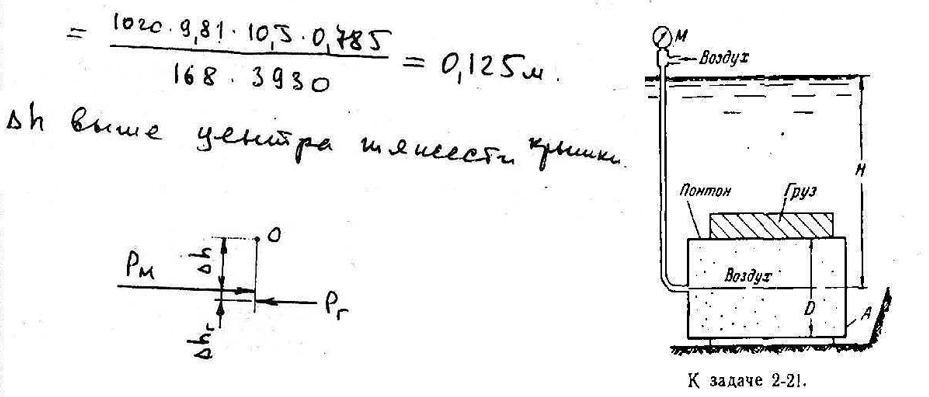 = 1020 · 9,81 · 10,5 · 0,785 / 168 · 3930 = 0,125 м.
Δh выше центра тяжести крышки.
O
Δh
Pм
Pг
Δhг
М
Воздух
H
Понтон
Груз
Воздух
D
A
К задаче 2-21.